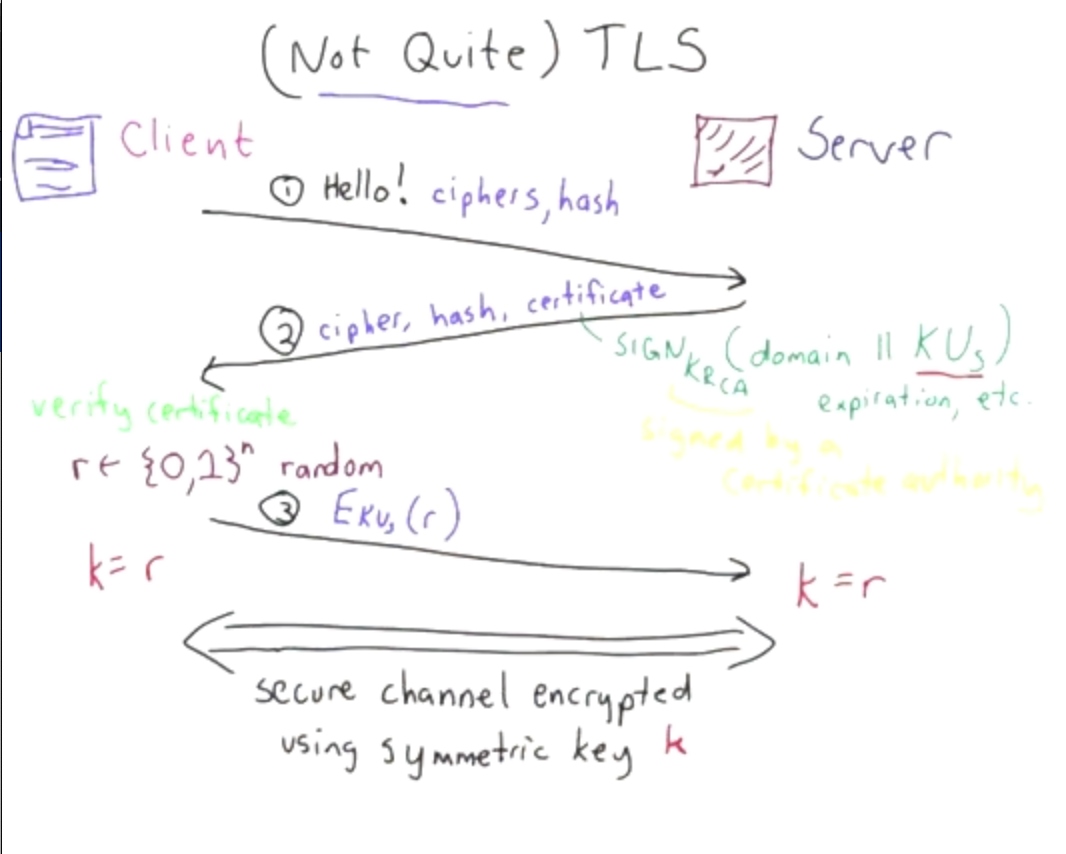 (Not Quite) TLS
Client
Server
① Hello! ciphers, hash
② cipher, hash, certificate
SIGN KRCA (domain || KUS)
expiration, etc.
verify certificate
signed by a
certificate authority
r ← {0,1}ⁿ random
③ EKUS (r)
k = r
k = r
secure channel encrypted
using symmetric key k